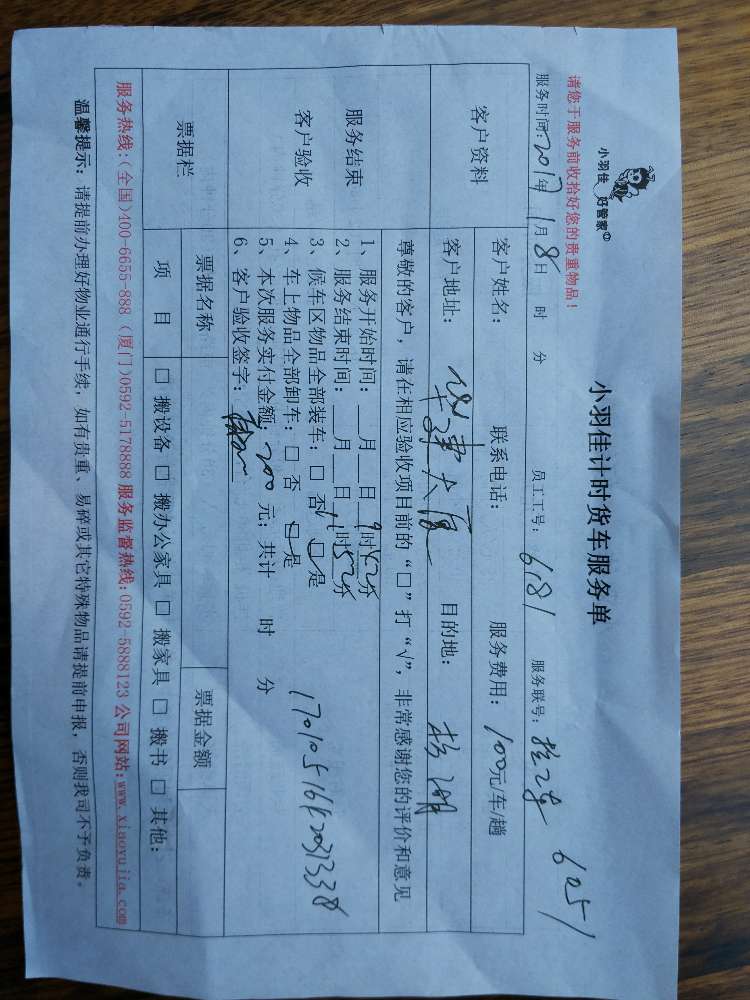 小羽佳 好管家
小羽佳计时货车服务单
请您于服务前收拾好您的贵重物品！
服务时间：2017年1月8日 时 分 员工工号：6181 服务联号： 6051
客户资料
客户姓名： 联系电话： 服务费用：100元/车/趟
客户地址： 大厦 目的地：
尊敬的客户，请在相应验收项目前的“□”打“√”，非常感谢您的评价和意见
服务结束
客户验收
1、服务开始时间：__月__日 9时 分
2、服务结束时间：__月__日 11时52分
3、候车区物品全部装车：□ 否 □ 是
4、车上物品全部卸车：□ 否 □ 是
5、本次服务实付金额：200 元；共计 时 分
6、客户验收签字：
票据栏 票据名称 票据金额
项 目 □ 搬设备 □ 搬办公家具 □ 搬家具 □ 搬书 □ 其他：
服务热线：(全国)400-6655-888 (厦门)0592-5178888 服务监督热线：0592-5888123 公司网站：www.xiaoyujia.com
温馨提示：请提前办理好物业通行手续，如有贵重、易碎或其它特殊物品请提前申报，否则我司不予负责。